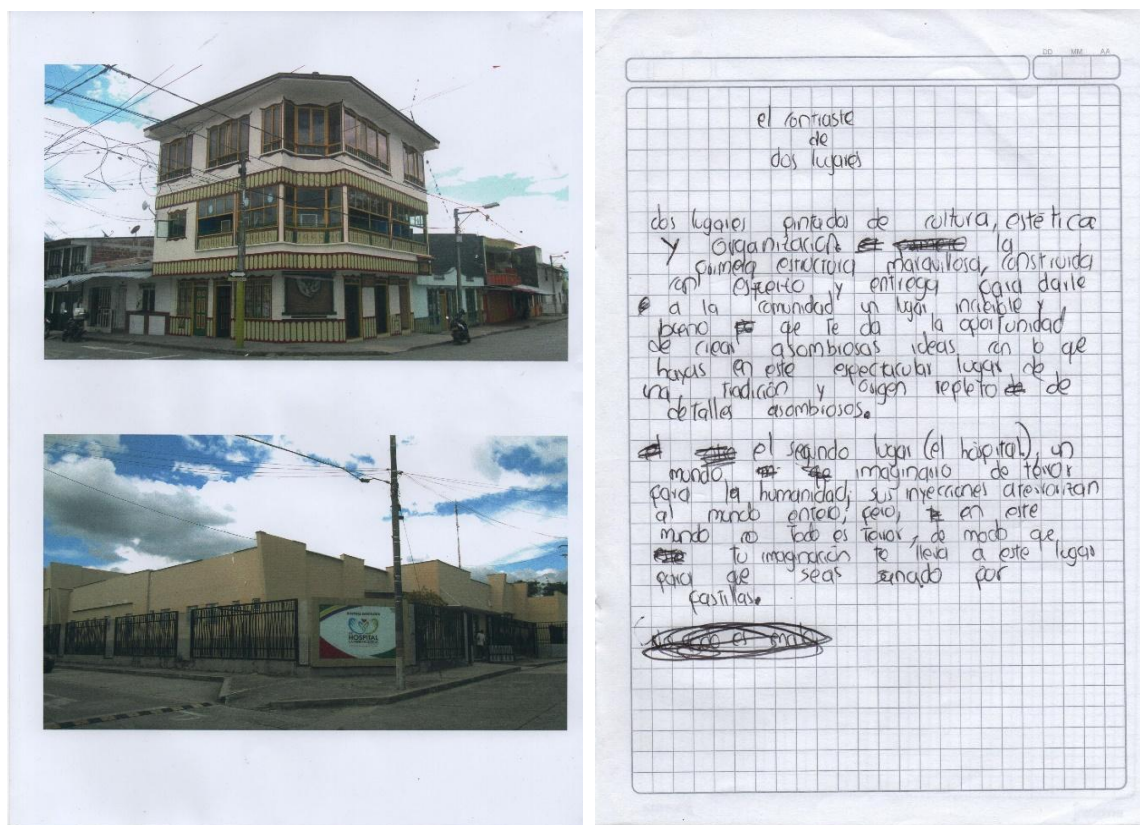 HOSPITAL
DD MM AA
el contraste
de
dos lugares
dos lugares pintados de cultura, estética
y organización la
primera estructura maravillosa, construida
con esfuerzo y entrega para darle
a la comunidad un lugar increible y
bueno que te da la oportunidad
de crear asombrosas ideas con lo que
hayas en este espectacular lugar de
una tradición y origen repleto de
detalles asombrosos.
el segundo lugar (el hóspital), un
mundo, imaginario de terror
para la humanidad; sus inyecciones aterrorizan
al mundo entero, pero, en este
mundo no todo es terror, de modo que,
tu imaginación te lleva a este lugar
para que seas sanado por
pastillas.